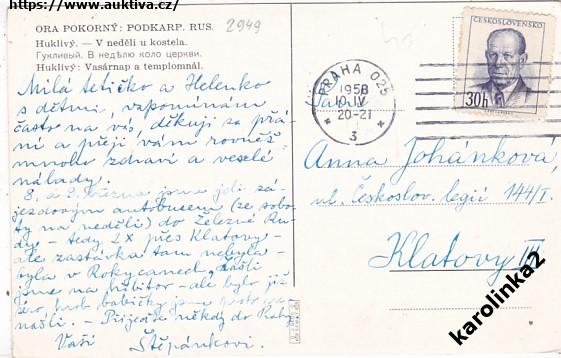 https://www.auktiva.cz/
ORA POKORNÝ: PODKARP. RUS.
2949
Huklivý. — V neděli u kostela.
Гукливый. В недѣлю коло церкви.
Huklivý: Vasárnap a templomnál.
Milá tetičko a Helenko
s dětmi, vzpomínám
často na vás, děkuji za přá-
ní a přeji vám rovněž
mnoho zdraví a veselé
nálady.
8. a 9. března jsme jeli zá-
jezdovým autobusem (ze sobo-
ty na neděli) do Železné Ru-
dy - tedy 2x přes Klatovy -
ale zastávka tam nebyla -
byla v Rokycanech, šli
jsme na hřbitov - ale bylo již
šero, hrob babičky jsme
našli. - Přijeďte někdy do Prahy
Vaši Štěpánkovi.
PRAHA 025
1958
10.IV
20-21
3
ČESKOSLOVENSKO
30h
Anna Johánková,
ul. Českoslov. legií 144/I.
Klatovy III
karolinka2